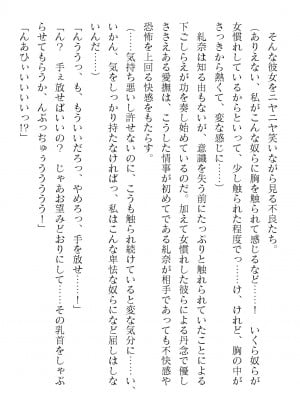 そんな彼女をニヤニヤ笑いながら見る不良たち。
(ありえない、私がこんな奴らに胸を触られて感じるなど……! いくら奴らが
女慣れしているからといって、少し触られた程度でっ……け、けれど、胸の中が
さっきから熱くて、変な感じに……)
礼奈は知る由もないが、意識を失う前にたっぷりと触れられていたことによる
下ごしらえが功を奏し始めているのだ。加えて女慣れした彼らによる丹念で優し
ささえある愛撫は、こうした情事が初めてである礼奈が相手であっても不快感や
恐怖を上回る快感をもたらす。
(……気持ち悪いし許せないのに、こうも触られ続けていると変な気分に……い、
いかん、気をしっかり持たなければっ、私はこんな卑怯な奴らなどに屈しはしな
いんだ……)
「んううっ、も、もういいだろっ、やめろっ、手を放せ……!」
「ん? 手ぇ放せばいいの? じゃあお望みどおりにして……その乳首をしゃぶ
らせてもらうか、んぶっちゅううううう!」
「んあひぃいいいいっ!?」